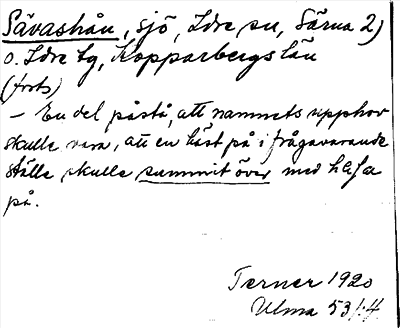 Sävashån, sjö, Idre sn, Särna 2)
o. Idre tg, Kopparbergs län
(forts)
– En del påstå, att namnets upphov
skulle vara, att en häst på i frågavarande
ställe skulle summit över med
på.
Terner 1920
Ulma 53/:4.